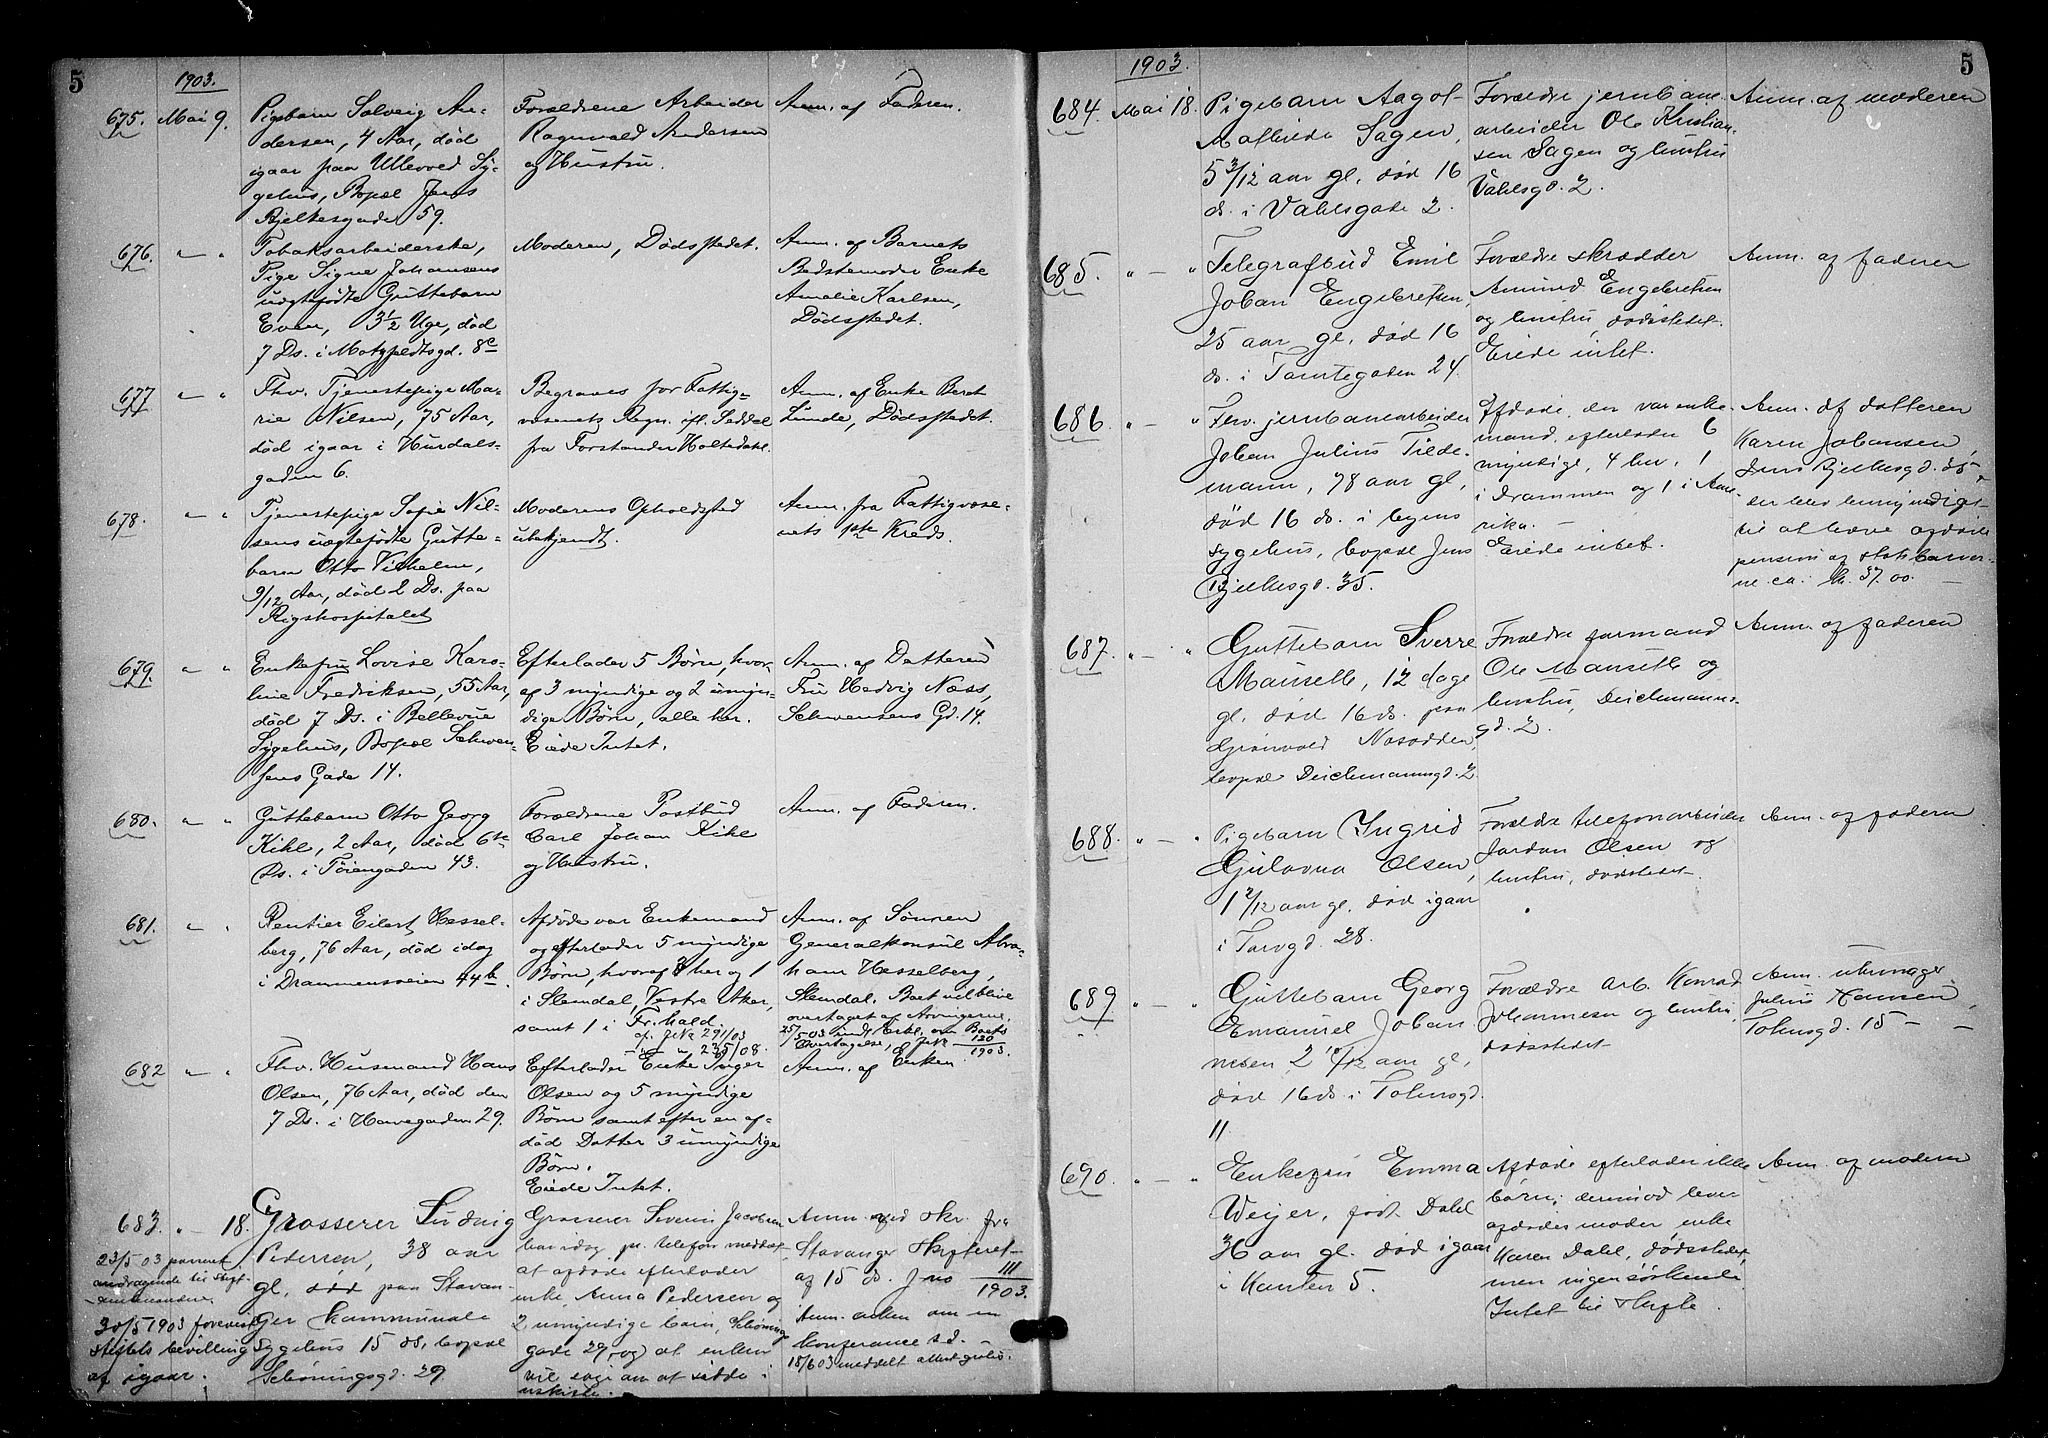 5
1903.
675. Mai 9.
Pigebarn Solveig An-
dersen, 4 Aar, død
igaar paa Ullevold Sy-
gehus, Bopæl Jens
Bjelkesgade 59.
Forældrene Arbeider
Ragnvald Andersen
og Hustru.
Anm. af Faderen.
676. " "
Tobaksarbeiderske,
Pige Signe Johansens
uægtefødte Guttebarn
Einar, 3½ Uge, død
7 Ds. i Motzfeldtsgd. 8c
Moderen, Dødsstedet.
Anm. af Barnets
Bedstemoder Enke
Amalie Karlsen,
Dødsstedet.
677 " "
Fhv. Tjenestepige Ma-
rie Nilsen, 75 Aar,
død igaar i Hurdals-
gaden 6.
Begraves for Fattig-
væsenets Regn. ifl. Seddel
fra Forstander Holtedahl.
Anm. af Enke Berit
Lunde, Dødsstedet.
678. " "
Tjenestepige Sofie Nil-
sens uægtefødte Gutte-
barn Otto Vilhelm,
9/12 Aar, død 2 Ds. paa
Rigshospitalet
Moderens Opholdssted
ubekjendt.
Anm. fra Fattigvæse-
nets 1ste Kreds.
679. " "
Enkefru Lovise Karo-
line Fredriksen, 55 Aar,
død 7 Ds. i Bellevue
Sygehus, Bopæl Schwen-
sens Gade 14.
Efterlader 5 Børn, hvor-
af 3 myndige og 2 umyn-
dige Børn, alle her.
Eiede Intet.
Anm. af Datteren
Fru Hedvig Næss,
Schwensens Gd. 14.
680. " "
Guttebarn Otto Georg
Kihl, 2 Aar, død 6te
Ds. i Tøiengaden 43.
Forældrene Postbud
Carl Johan Kihl
og Hustru.
Anm. af Faderen.
681. " "
Rentier Eilert Hessel-
berg, 76 Aar, død idag
i Drammensveien 44b.
Afdøde var Enkemand
og efterlader 5 myndige
Børn, hvoraf 3 her og 1
i Slemdal, Vestre Aker,
samt 1 i Fr.hald.
Anm. af Sønnen
Generalkonsul Abra-
ham Hesselberg,
Slemdal. Boet vil blive
overtaget af Arvingerne.
25/5 03 indk. Erkl. om Boets
Overtagelse, jfr. JNr 120/1903.
682 " "
Fhv. Husmand Hans
Olsen, 76 Aar, død den
7 Ds. i Havegaden 29.
Efterlader Enke Inger
Olsen og 5 myndige
Børn samt efter en af-
død Datter 3 umyndige
Børn.
Eiede Intet.
Anm. af Enken
683. " 18.
23/5 03
30/5 1903
bevilling
af igaar.
Grosserer Ludvig
Pedersen, 38 aar
gl, død paa Stavan-
ger kommunale
Sygehus 15 ds, bopæl
Schøningsgd. 29
Grosserer Severin Jacobsen
har idag pr. telefon meddelt
at afdøde efterlader
enke, Anna Pedersen og
2 umyndige barn, Schønings-
gade 29, og at enken
vil søge om at sidde i
uskifte.
Anm. ved skr. fra
Stavanger skifteret
af 15 ds. Jno 111/1903.
Anm. enken om en
konferance s.d.
18/6 03 meddelt attest gratis.
5
1903.
684. Mai 18.
Pigebarn Aagot
Mathilde Sagen,
5 3/12 aar gl, død 16
ds. i Vahlsgade 2.
Forældre jernbane-
arbeider Ole Kristian-
sen Sagen og hustru
Vahlsgd. 2.
Anm. af moderen
685. " — "
Telegrafbud Emil
Johan Engebretsen,
25 aar gl, død 16
ds. i Tomtegaden 24.
Forældre skrædder
Amund Engebretsen
og hustru, dødsstedet.
Eiede intet.
Anm. af faderen
686. " — "
Fhv. jernbanearbeider
Johan Julius Tide-
mann, 78 aar gl,
død 16 ds. i byens
sygehus, bopæl Jens
Bjelkesgd. 35.
Afdøde, der var enke-
mand, efterlader 6
myndige, 4 her, 1
i Drammen og 1 i Ame-
rika. —
Eiede intet.
Anm. af datteren
Karen Johansen
Jens Bjelkesgd. 35
der blev bemyndiget
til at hæve afdøde
pension af statsbaner-
ne ca. kr. 37.00. —
687. " — "
Guttebarn Sverre
Mauseth, 12 dage
gl. død 16 ds. paa
Grønvold Nesodden,
bopæl Deichmannsgd. 2
Forældre formand
Ole Mauseth og
hustru, Deichmanns-
gd. 2.
Anm. af faderen
688. " — "
Pigebarn Ingrid
Gulovna Olsen,
1 2/12 aar gl. død igaar
i Torvgd. 28.
Forældre telefonarbeider
Jordan Olsen og
hustru, dødsstedet.
Anm. af faderen
689 " — "
Guttebarn Georg
Emanuel Johan-
nesen, 2 10/12 aar gl,
død 16 ds i Tøhusgd.
11.
Forældre arb. Konrad
Johannesen og hustru,
dødsstedet
Anm. uhrmager
Julius Hansen,
Tøhusgd. 15 —
690. " — "
Enkefru Emma
Weijer, født Dahl
36 aar gl. død igaar
i Kanten 5.
Afdøde efterlader ikke
børn; derimod lever
afdødes moder enke
Karen Dahl, dødsstedet,
men ingen søskende.
Intet til skifte.
Anm. af moderen